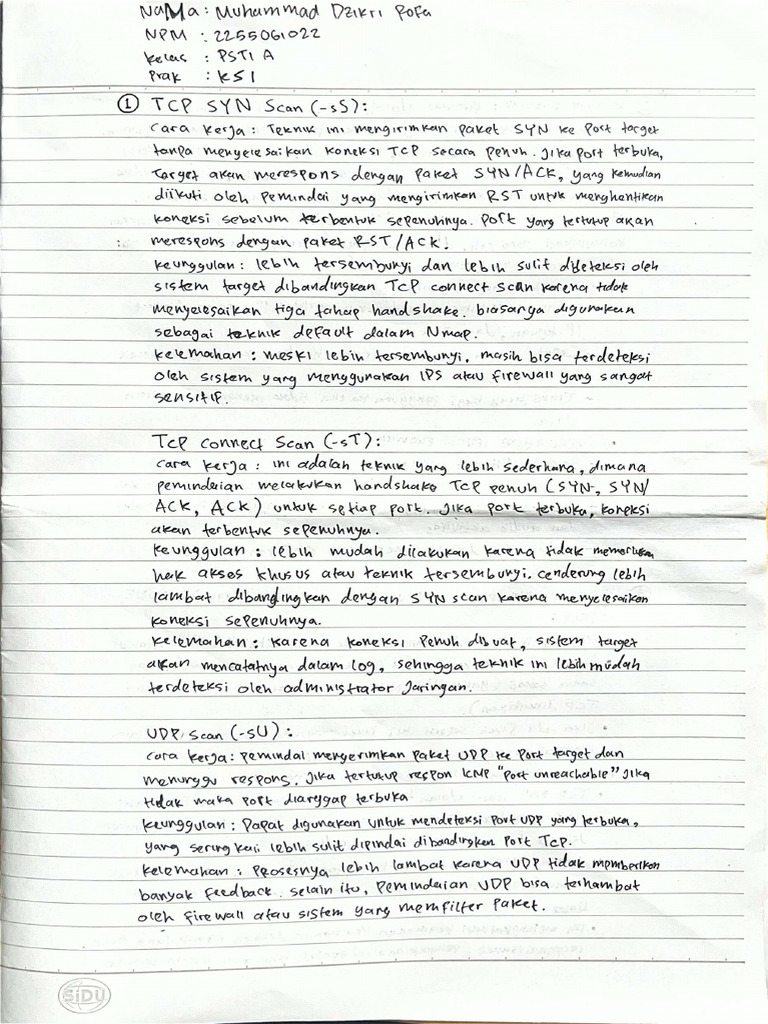 Nama : Muhammad Dzikri Rofa
NPM : 2255061022
Kelas : PSTI A
Prak : KSI
① TCP SYN Scan (-sS) :
Cara kerja : Teknik ini mengirimkan paket SYN ke port target
tanpa menyelesaikan koneksi TCP secara penuh. Jika port terbuka,
target akan merespons dengan paket SYN/ACK, yang kemudian
diikuti oleh pemindai yang mengirimkan RST untuk menghentikan
koneksi sebelum terbentuk sepenuhnya. Port yang tertutup akan
merespons dengan paket RST/ACK.
Keunggulan : lebih tersembunyi dan lebih sulit dideteksi oleh
sistem target dibandingkan TCP connect scan karena tidak
menyelesaikan tiga tahap handshake. biasanya digunakan
sebagai teknik default dalam Nmap.
Kelemahan : meski lebih tersembunyi, masih bisa terdeteksi
oleh sistem yang menggunakan IPS atau firewall yang sangat
sensitif.
Tcp Connect Scan (-sT) :
Cara kerja : ini adalah teknik yang lebih sederhana, dimana
pemindaian melakukan handshake TCP penuh (SYN, SYN/
ACK, ACK) untuk setiap port. Jika port terbuka, koneksi
akan terbentuk sepenuhnya.
Keunggulan : lebih mudah dilakukan karena tidak memerlukan
hak akses khusus atau teknik tersembunyi. cenderung lebih
lambat dibandingkan dengan SYN scan karena menyelesaikan
koneksi sepenuhnya.
Kelemahan : karena koneksi penuh dibuat, sistem target
akan mencatatnya dalam log, sehingga teknik ini lebih mudah
terdeteksi oleh administrator jaringan.
UDP Scan (-sU) :
Cara kerja : pemindai mengerimkan paket UDP ke port target dan
menunggu respons. Jika tertutup respon ICMP "port unreachable" Jika
tidak maka port dianggap terbuka
Keunggulan : Dapat digunakan untuk mendeteksi port UDP yang terbuka,
yang seringkali lebih sulit dipindai dibandingkan port TCP.
Kelemahan : Prosesnya lebih lambat karena UDP tidak memberikan
banyak feedback. selain itu, pemindaian UDP bisa terhambat
oleh firewall atau sistem yang memfilter paket.
SiDU